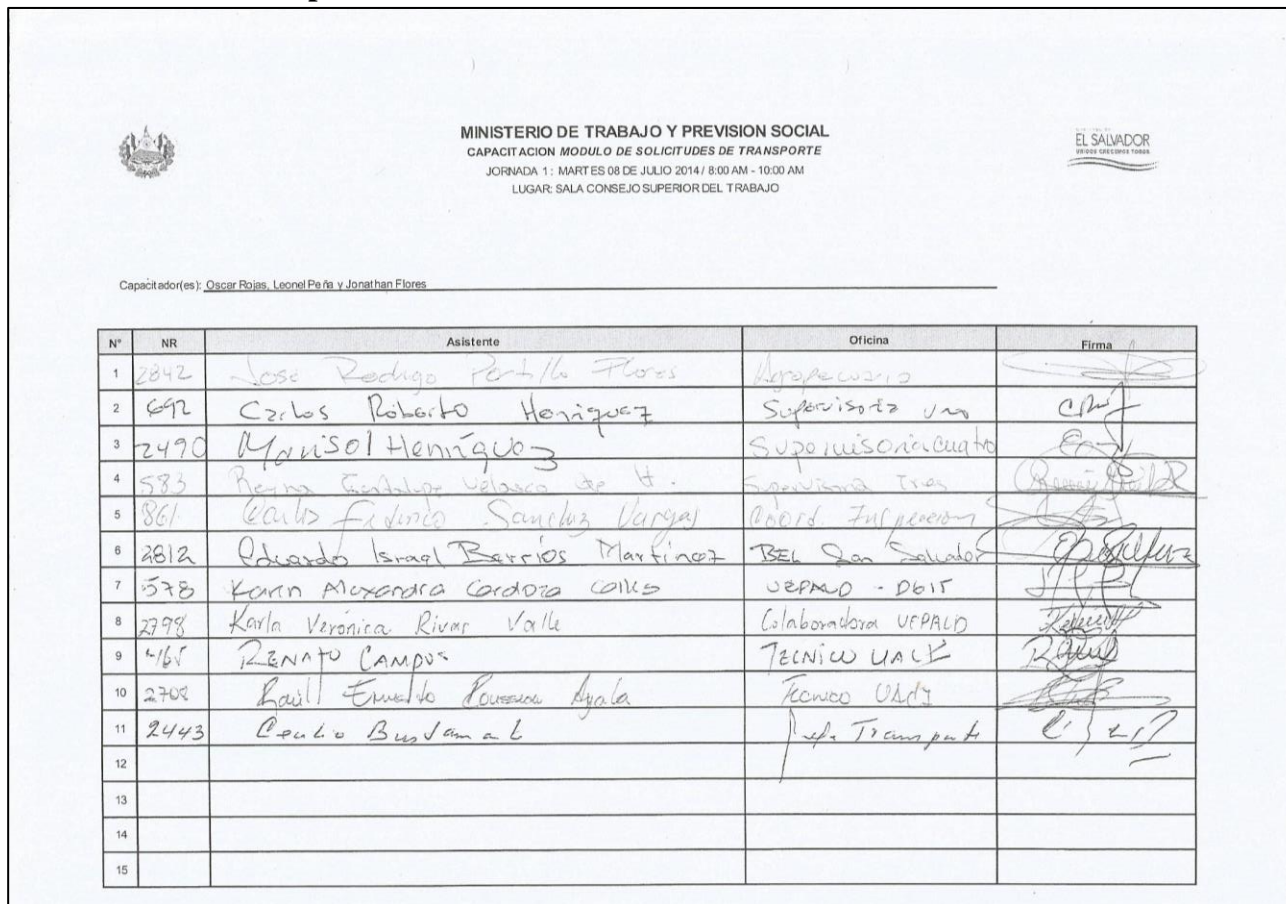 MINISTERIO DE TRABAJO Y PREVISION SOCIAL
CAPACITACION MODULO DE SOLICITUDES DE TRANSPORTE
JORNADA 1 : MARTES 08 DE JULIO 2014 / 8:00 AM - 10:00 AM
LUGAR: SALA CONSEJO SUPERIOR DEL TRABAJO
EL SALVADOR
UNIDOS CRECEMOS TODOS
Capacitador(es): Oscar Rojas, Leonel Peña y Jonathan Flores
N° NR Asistente Oficina Firma
1 2842 Jose Rodrigo Portillo Flores Agropecuario
2 692 Carlos Roberto Henriquez Supervisoria uno
3 2490 Marisol Henríquez Supervisoria cuatro
4 583 Reyna Guadalupe Velasco de H. Supervisoria Tres
5 861 Carlos Federico Sanchez Vargas Coord. Inspeccion
6 2812 Eduardo Israel Barrios Martínez BEL San Salvador
7 578 Karin Alexandra Cardoza UEPALD - DGIT
8 2798 Karla Verónica Rivas Valle Colaboradora UEPALD
9 RENATO CAMPOS TECNICO UACI
10 2708 Raúl Ernesto Ayala Tecnico UACI
11 2443 Cecilio Bustamante Jefe Transporte
12
13
14
15